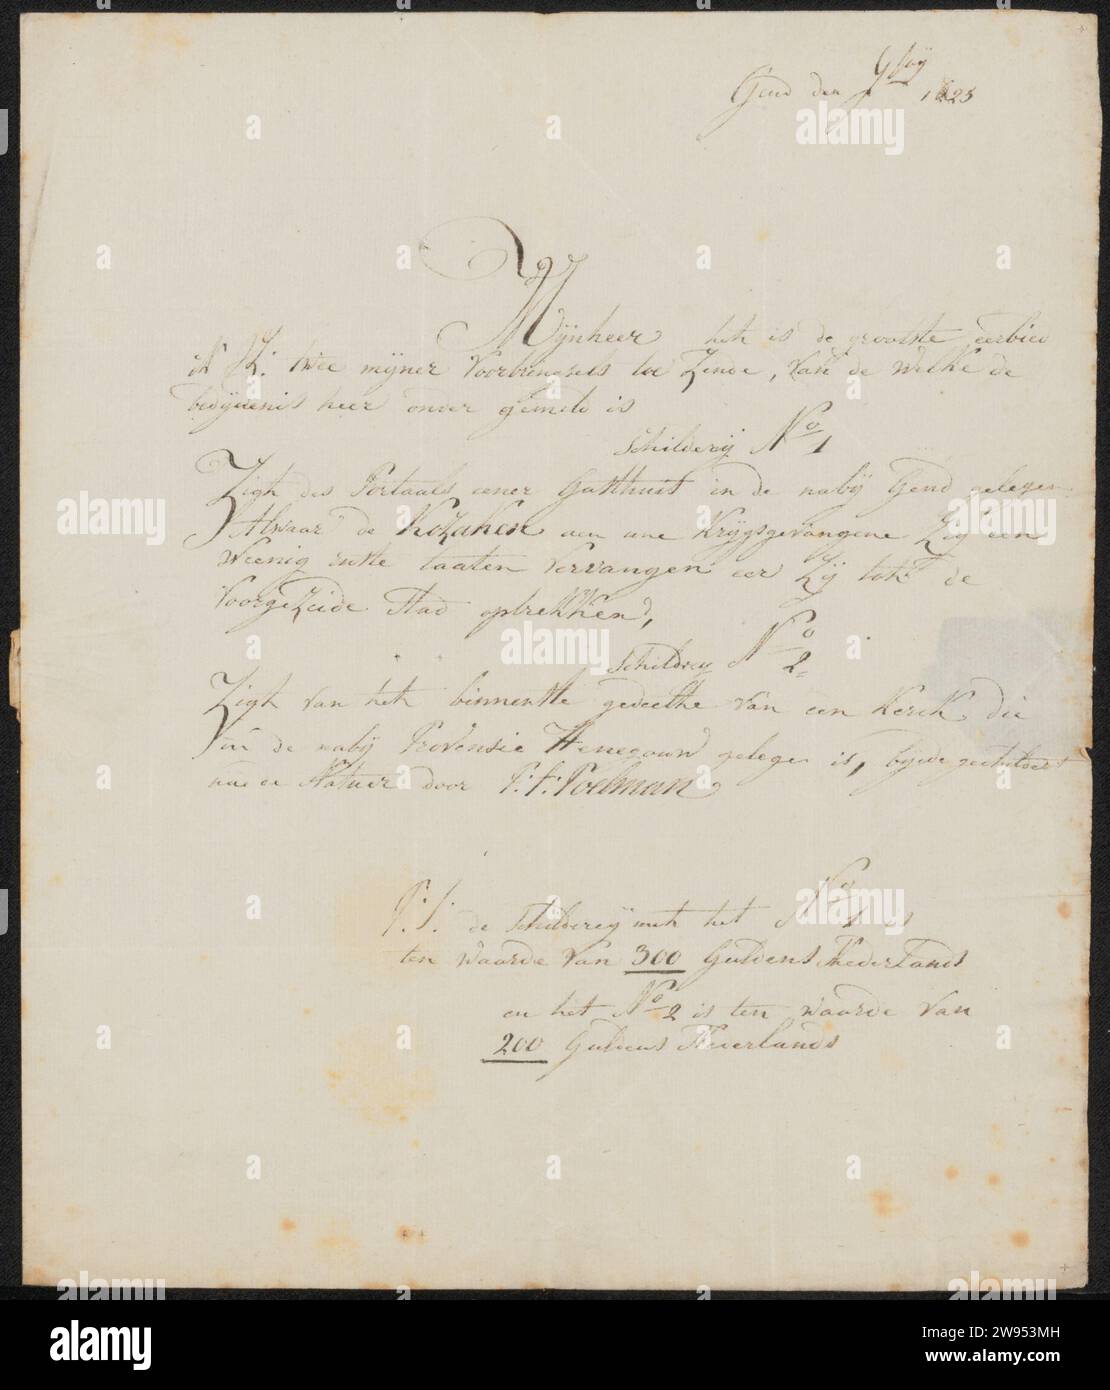 Gend den 1825
Mijnheer het is de grootste eerbied
ik twee mijner voorbrengsels toe Zende, van de welke de
bedijdenis heer onder gemeld is
Schilderij No 1
Zigt des Portaals eener Gasthuis in de nabij Gend gelegen
Alwaar de Kozakken aen Krijgsgevangene een
Weenig laaten vervangen eer Zij tot de
Voorgezeide Stad optrekken,
Schildrey No 2
Zigt van het binnenste gedeelte van een Kerck die
in de nabij Provensie Henegouw gelege is, geschildert
na de Natuer door P: F: Poelman
P: S: de Schilderey met het No 1 is
ten waarde van 300 Guldens Nederlands
en het No 2 is ten waarde van
200 Guldens Nederlands
alamy
alamy
Image ID: 2W953MH
www.alamy.com